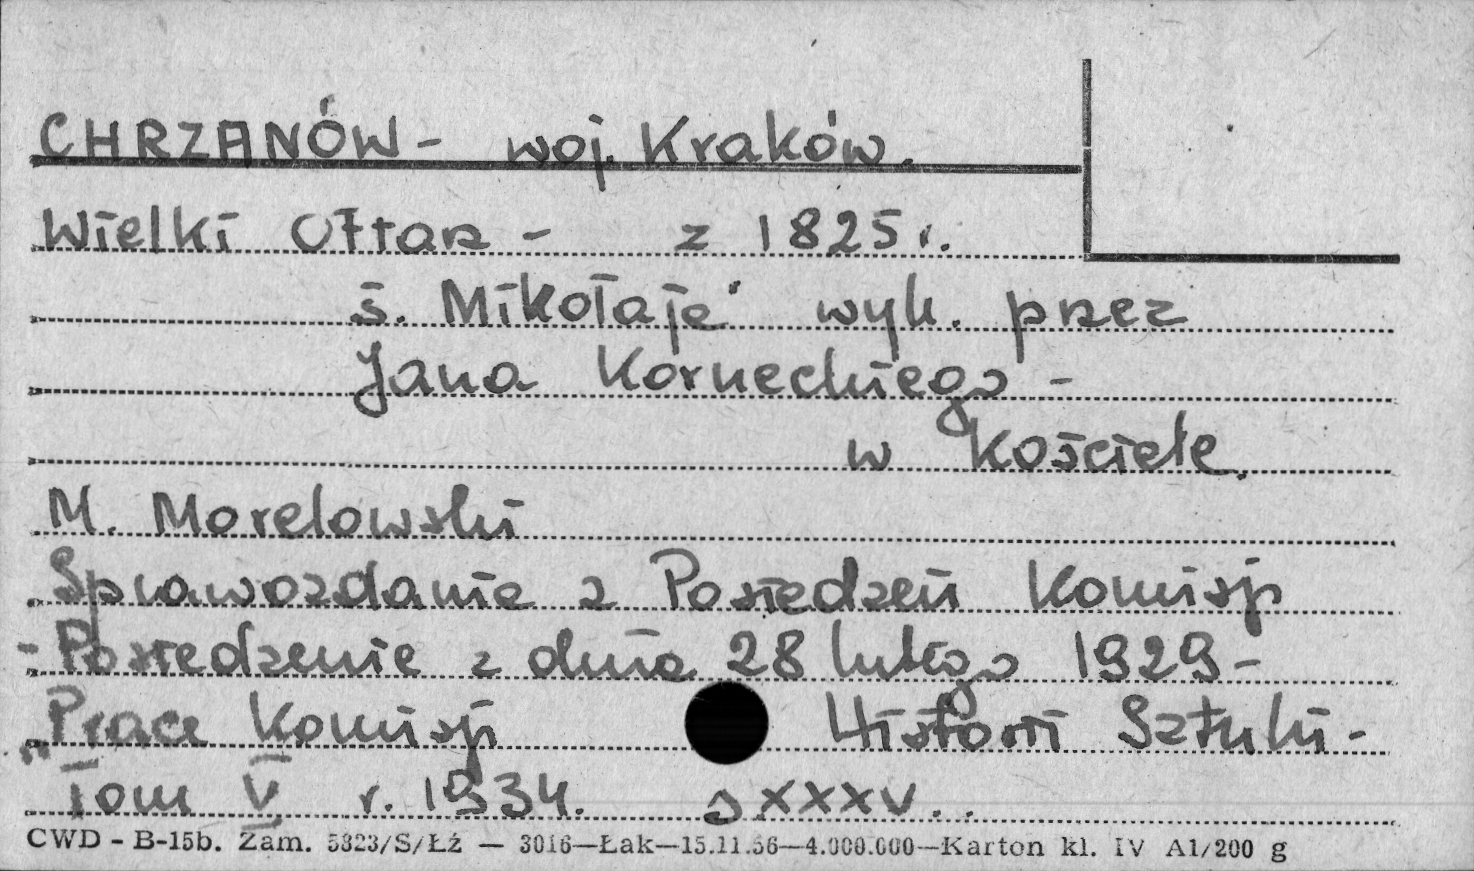 CHRZANÓW - woj. Kraków.
Wielki Ołtarz - z 1825 r.
ś. Mikołaja wyk. przez
Jana Korneckiego -
w Kościele.
M. Morelowski
Sprawozdanie z Posiedzeń Komisji
- Posiedzenie z dnia 28 lutego 1929 -
"Prace Komisji Historii Sztuki -
Tom V r. 1934. s XXXV..
CWD - B-15b. Zam. 5323/S/Łź — 3016—Łak—15.11.56—4.000.000—Karton kl. IV A1/200 g